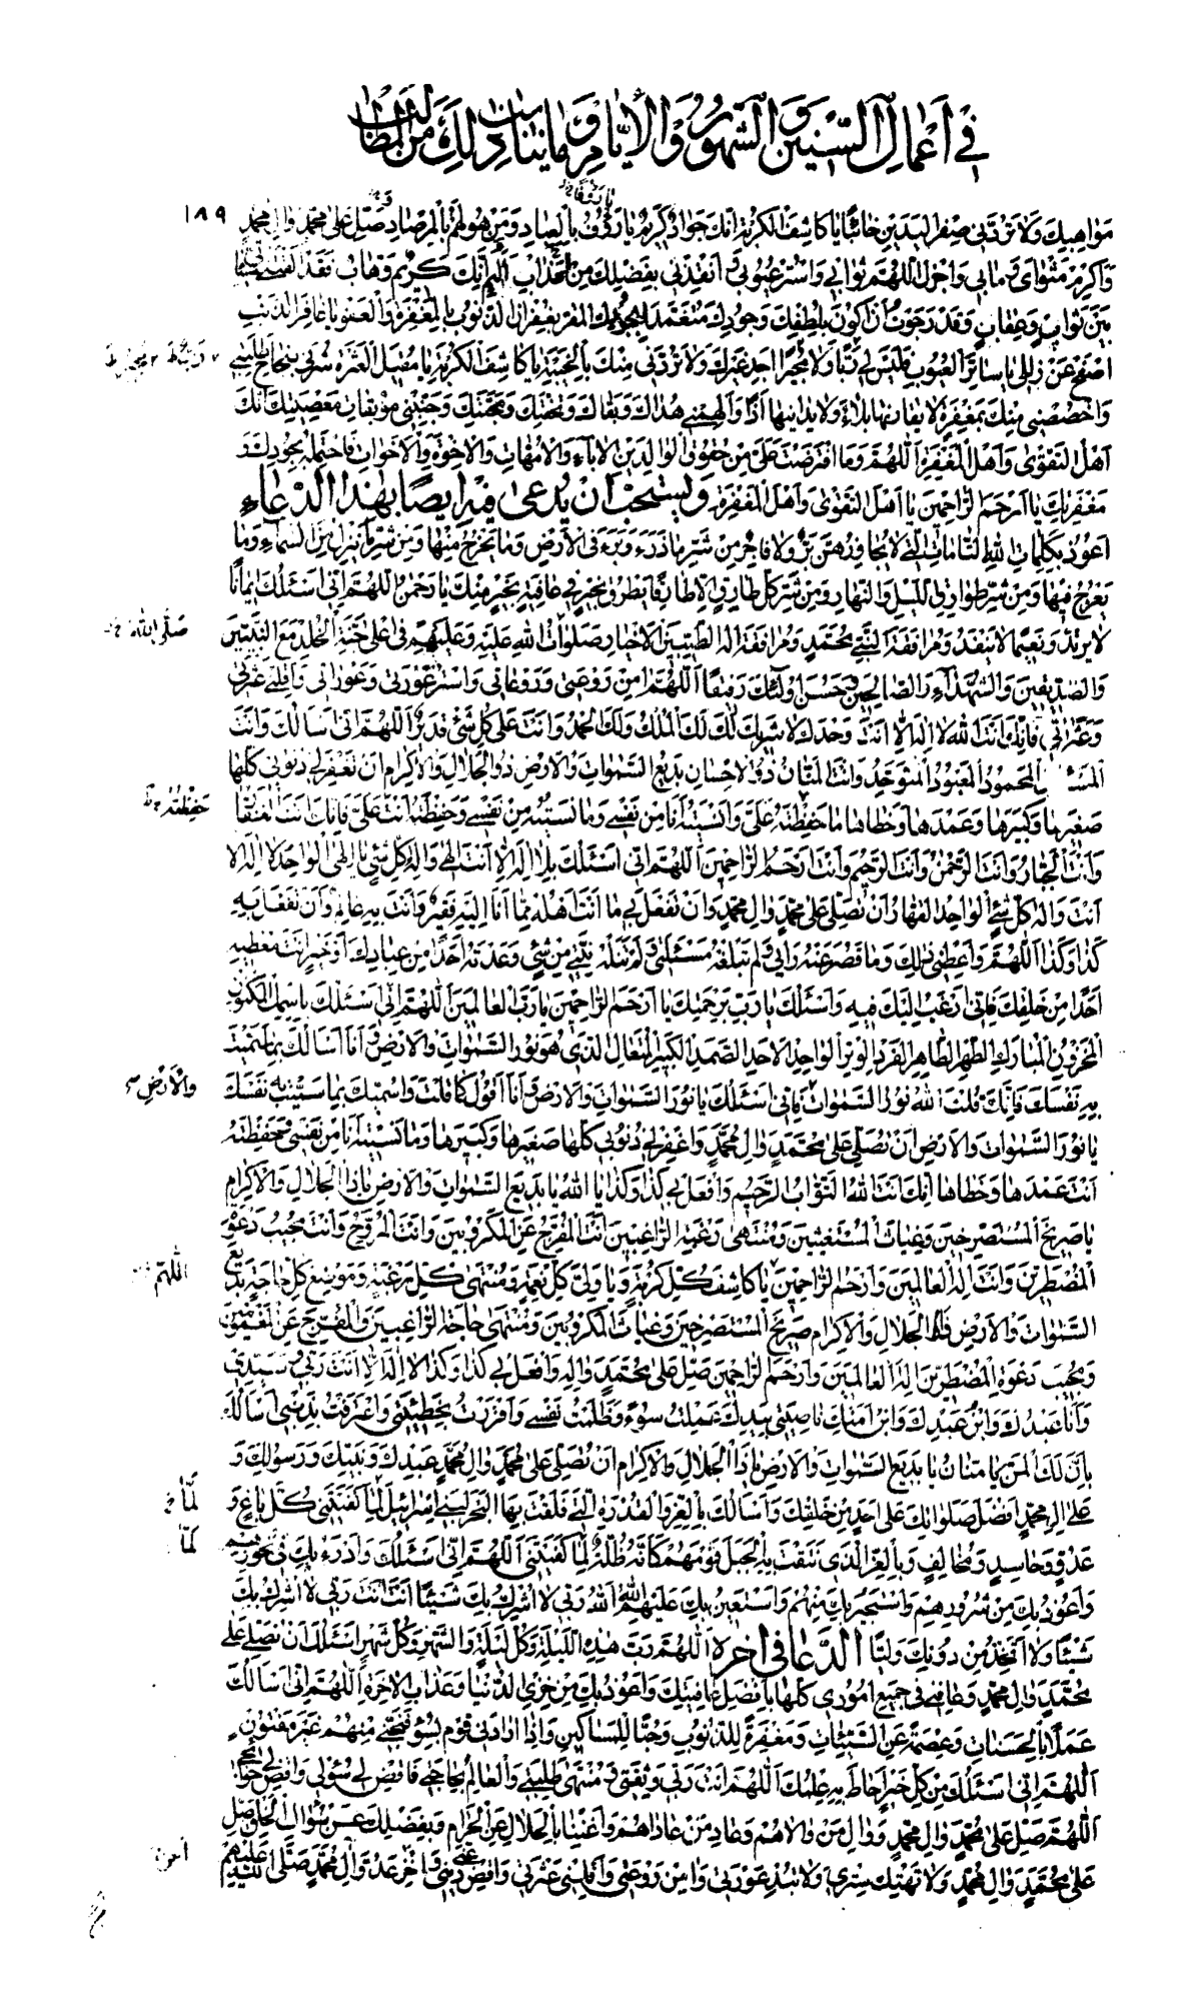 في أعمال السنين والشهور والأيام وما يناسب ذلك من المطالب
١٨٩
مواهبك ولا تردني صفر اليدين خائبا يا كاشف الكربة انك جواد كريم يا رؤف بالعباد ومن هو لهم بالمرصاد صل على محمد وال محمد
واكرم مثواى ومابي واجزل اللهم ثوابي واستر عيوبي وانقذني بفضلك من العذاب اليم انك كريم وهاب فقد
بين ثواب وعقاب وقد رجوت ان اكون بلطفك وجودك متغمدا بغفران الذنوب بالمغفرة والعفو يا غافر الذنب
اصفح عن زللي يا ساتر العيوب فليس لي رب ولا مجير احد غيرك ولا تردني منك بالخيبة يا كاشف الكربة يا مقيل العثرة سرني بنجاح طلبتي
واخصصني منك بمغفرة لا يقارنها بلاء ولا يدانيها اذا والهمني هداك وبقاك وتحفتك ومحبتك وجنبني موبقات معصيتك انك
اهل التقوى واهل المغفرة اللهم وما افترضت علي من حقوق الوالدين الاباء والامهات والاخوة والاخوات فاحتمله بجودك و
مغفرتك يا ارحم الراحمين يا اهل التقوى واهل المغفرة ويستحب ان يدعى فيه ايضا بهذا الدعاء
اعوذ بكلمات الله التامات التي لا يجاوزهن بر ولا فاجر من شر ما ذرء وبرء فى الارض وما يخرج منها ومن شر ما ينزل من السماء وما
يعرج فيها ومن شر طوارق الليل والنهار ومن شر كل طارق الا طارقا يطرق بخير في عافية بخير منك يا رحمن اللهم اني اسئلك ايمانا
لا يرتد ونعيما لا ينفد ومرافقة النبي محمد ومرافقة اله الطيبين الاخيار صلوات الله عليه وعليهم في اعلى جنة الخلد مع النبيين
صلى الله
والصديقين والشهداء والصالحين وحسن اولئك رفيقا اللهم امن روعتى وروعاتي واستر عورتي وعوراتي واقلني عثرتي
وعثراتي فانك انت الله لا اله الا انت وحدك لا شريك لك لك الملك ولك الحمد وانت على كل شئ قدير اللهم اني اسالك وانت
المحمود المعبود المتوحد وانت المنان ذو الاحسان بديع السموات والارض ذو الجلال والاكرام ان تغفر لي ذنوبي كلها
صغيرها وكبيرها وعمدها وخطاها ما حفظته علي وانسيته انا من نفسي وما نسيته من نفسي وحفظته انت علي فانك انت الغفار
حفظته
وانت الجبار وانت الرحمن وانت الرحيم وانت ارحم الراحمين اللهم اني اسئلك بلا اله الا انت الهي واله كل شئ يا الهي الواحد لا اله الا
انت واله كل شئ الواحد القهار ان تصلي على محمد وال محمد وان تفعل بي ما انت اهله مما انا اليه فقير وانت به عالم وان تفعل به
كذا وكذا اللهم واعطني ذلك وما قصر عنه رأيي ولم تبلغه مسئلتي ولم تنله نيتي من شئ وعدته احدا من عبادك او خير انت معطيه
احدا من خلقك فاني ارغب اليك فيه واسئلك يا رب برحمتك يا ارحم الراحمين يا رب العالمين اللهم اني اسئلك باسمك المكنون
المخزون المبارك الطهر الطاهر الفرد الوتر الواحد الاحد الصمد الكبير المتعال الذي هو نور السموات والارض وانا اسالك بما سميت
به نفسك فانك قلت الله نور السموات فاني اسئلك يا نور السموات والارض وانا اقول كما قلت واسميك بما سميت به نفسك
والارض
يا نور السموات والارض ان تصلي على محمد وال محمد واغفر لي ذنوبي كلها صغيرها وكبيرها وما نسيته انا من نفسي وحفظته
انت عمدها وخطاها انك انت الله التواب الرحيم وافعل بي كذا وكذا يا الله يا بديع السموات والارض يا ذا الجلال والاكرام
يا صريخ المستصرخين وغياث المستغيثين ومنتهى رغبة الراغبين انت المفرج عن المكروبين وانت المروح وانت مجيب دعوة
المضطرين وانت اله العالمين وارحم الراحمين يا كاشف كل كربة ويا ولي كل نعمة ومنتهى كل رغبة وموضع كل حاجة بديع
اللهم
السموات والارض ذا الجلال والاكرام صريخ المستصرخين وغياث المكروبين ومنتهى حاجة الراغبين والمفرج عن المغمومين
ومجيب دعوة المضطرين اله العالمين وارحم الراحمين صل على محمد واله وافعل بي كذا وكذا لا اله الا انت ربي وسيدي
وانا عبدك وابن عبدك وابن امتك ناصيتي بيدك عملت سوء وظلمت نفسي واقررت بخطيئتي واعترفت بذنبي اسالك
بان لك المن يا منان يا بديع السموات والارض يا ذا الجلال والاكرام ان تصلي على محمد وال محمد عبدك ونبيك ورسولك و
على ال محمد افضل صلواتك على احد من خلقك واسالك بالعز والقدرة التي فلقت بها البحر لبني اسرائيل لما كفيتني كل باغ و
لما
عدو وحاسد ومخالف وبالعز الذي نتقت به الجبل فوقهم كانه ظلة لما كفيتني اللهم اني اسئلك وادرء بك في نحورهم
لما
واعوذ بك من شرورهم واستجير بك منهم واستعين بك عليهم الله الله ربي لا اشرك بك شيئا انت انت ربي لا اشرك بك
شيئا ولا اتخذ من دونك وليا الدعا في اخره اللهم رب هذه الليلة وكل ليلة والشهر وكل شهر اسئلك ان تصلي على
محمد وال محمد وعافني في جميع اموري كلها بافضل عافيتك واعوذ بك من خزي الدنيا وعذاب الاخرة اللهم اني اسالك
عملا بالحسنات وعصمة عن السيئات ومغفرة للذنوب وحبا للمساكين واذا اردت بقوم بسوء فنجني منهم غير مفتون
اللهم اني اسئلك من كل خير احاط به علمك اللهم انت ربي وثقتي ومنتهى طلبتي والعالم بحاجتي فاقض لي سؤلي واقض لي حوائجي
اللهم صل على محمد وال محمد ووال من والاهم وعاد من عاداهم واغننا بالحلال عن الحرام وبفضلك عن سؤال الخلق وصل
على محمد وال محمد ولا تهتك ستري ولا تبد عورتي وامن روعتي واقلني عثرتي واقض عني ديني واخز عدو ال محمد صلى الله عليهم